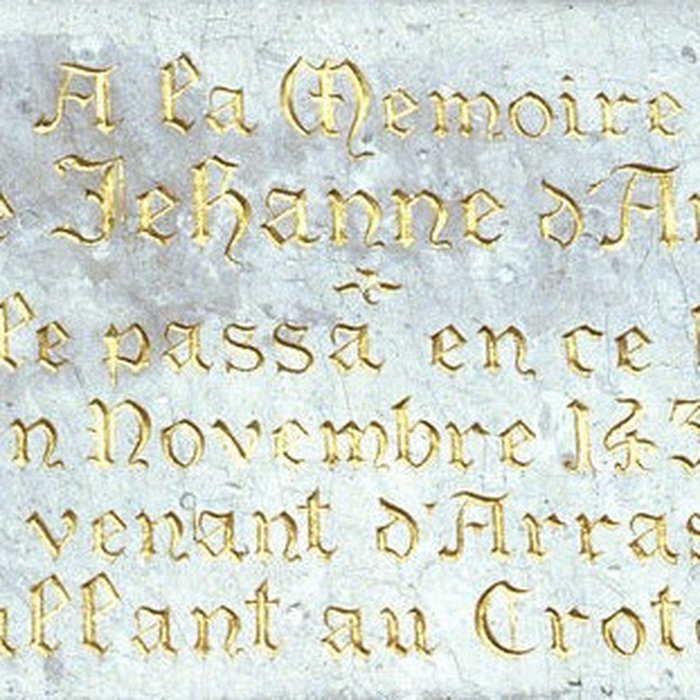 A la Memoire
e Jehanne d'Ar
lle passa en ce l
n Novembre 143
venant d'Arras
allant au Croto